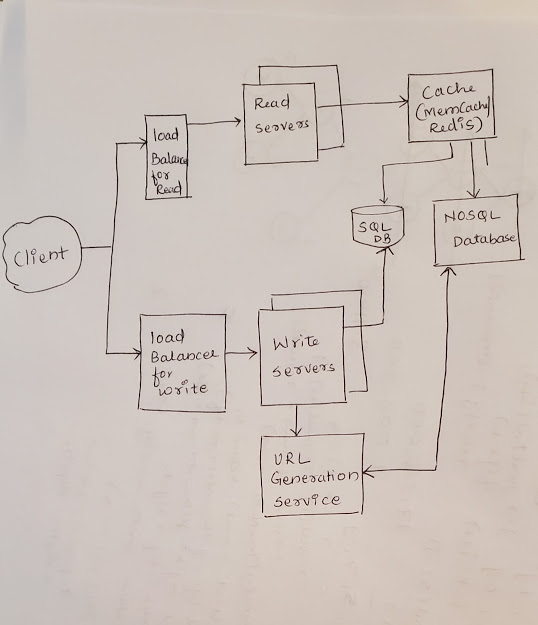 Client
load
Balancer
for
Read
Read
Servers
Cache
(MemCache/
Redis)
SQL
DB
NOSQL
Database
load
Balancer
for
Write
Write
Servers
URL
Generation
Service